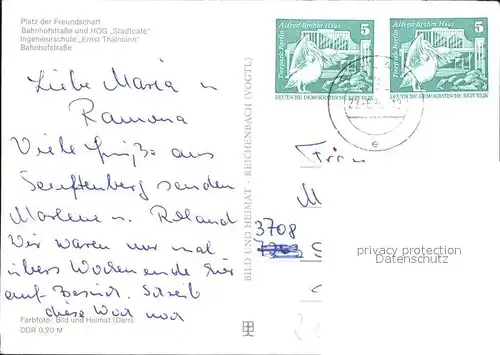 Platz der Freundschaft
Bahnhofstraße und HOG „Stadtcafé"
Ingenieurschule „Ernst Thälmann"
Bahnhofstraße
Liebe Maria u
Ramona
Viele Grüße aus
Senftenberg senden
Marlene u. Roland
Wir waren nur mal
übers Wochenende hier
auf Besuch. Schreib
diese Word noch
Farbfoto: Bild und Heimat (Darr)
DDR 0,20 M
BILD UND HEIMAT · REICHENBACH (VOGTL)
Alfred Brehm Haus 5
Tierpark Berlin
DEUTSCHE DEMOKRATISCHE REPUBLIK
Alfred Brehm Haus 5
Tierpark Berlin
DEUTSCHE DEMOKRATISCHE REPUBLIK
e
M
3708
privacy protection
Datenschutz